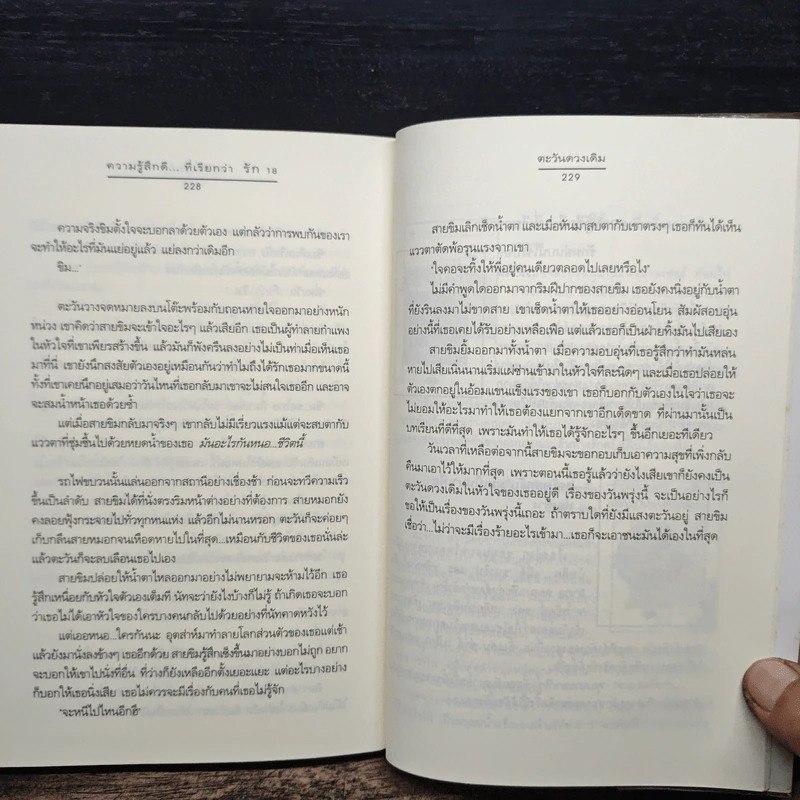 ความรู้สึกดี... ที่เรียกว่า รัก 18
228
ความจริงขิมตั้งใจจะบอกลาด้วยตัวเอง แต่กลัวว่าการพบกันของเรา
จะทำให้อะไรที่มันแย่อยู่แล้ว แย่ลงกว่าเดิมอีก
ขิม..."
ตะวันวางจดหมายลงบนโต๊ะพร้อมกับถอนหายใจออกมาอย่างหนัก
หน่วง เขาคิดว่าสายขิมจะเข้าใจอะไรๆ แล้วเสียอีก เธอเป็นผู้ทำลายกำแพง
ในหัวใจที่เขาเพียรสร้างขึ้น แล้วมันก็พังครืนลงอย่างไม่เป็นท่าเมื่อเห็นเธอ
มาที่นี่ เขายังนึกสงสัยตัวเองอยู่เหมือนกันว่าทำไมถึงได้รักเธอมากขนาดนี้
ทั้งที่เขาเคยนึกอยู่เสมอว่าวันไหนที่เธอกลับมาเขาจะไม่สนใจเธออีก และอาจ
จะสมน้ำหน้าเธอด้วยซ้ำ
แต่เมื่อสายขิมกลับมาจริงๆ เขากลับไม่มีเรี่ยวแรงแม้แต่จะสบตากับ
แววตาที่ชุ่มชื้นไปด้วยหยดน้ำของเธอ มันอะไรกันหนอ...ชีวิตนี้
รถไฟขบวนนั้นแล่นออกจากสถานีอย่างเชื่องช้า ก่อนจะทวีความเร็ว
ขึ้นเป็นลำดับ สายขิมได้ที่นั่งตรงริมหน้าต่างอย่างที่ต้องการ สายหมอกยัง
คงลอยฟุ้งกระจายไปทั่วทุกหนแห่ง แล้วอีกไม่นานหรอก ตะวันก็จะค่อยๆ
เก็บกลืนสายหมอกจนเหือดหายไปในที่สุด...เหมือนกับชีวิตของเธอนั่นล่ะ
แล้วตะวันก็จะลบเลือนเธอไปเอง
สายขิมปล่อยให้น้ำตาไหลออกมาอย่างไม่พยายามจะห้ามไว้อีก เธอ
รู้สึกเหนื่อยกับหัวใจตัวเองเต็มที นัทจะว่ายังไงบ้างก็ไม่รู้ ถ้าเกิดเธอจะบอก
ว่าเธอไม่ได้เอาหัวใจของใครบางคนกลับไปด้วยอย่างที่นัทคาดหวังไว้
แต่เออหนอ...ใครกันนะ อุตส่าห์มาทำลายโลกส่วนตัวของเธอแต่เช้า
แล้วยังมานั่งลงข้างๆ เธออีกด้วย สายขิมรู้สึกเซ็งขึ้นมาอย่างบอกไม่ถูก อยาก
จะบอกให้เขาไปนั่งที่อื่น ที่ว่างก็ยังเหลืออีกตั้งเยอะแยะ แต่อะไรบางอย่าง
ก็บอกให้เธอนิ่งเสีย เธอไม่ควรจะมีเรื่องกับคนที่เธอไม่รู้จัก
"จะหนีไปไหนอีกฮึ"
ตะวันดวงเดิม
229
สายขิมเลิกเช็ดน้ำตา และเมื่อหันมาสบตากับเขาตรงๆ เธอก็ทันได้เห็น
แววตาตัดพ้อรุนแรงจากเขา
"ใจคอจะทิ้งให้พี่อยู่คนเดียวตลอดไปเลยหรือไง"
ไม่มีคำพูดใดออกมาจากริมฝีปากของสายขิม เธอยังคงนิ่งอยู่กับน้ำตา
ที่ยังรินลงมาไม่ขาดสาย เขาเช็ดน้ำตาให้เธออย่างอ่อนโยน สัมผัสอบอุ่น
อย่างนี้ที่เธอเคยได้รับอย่างเหลือเฟือ แต่แล้วเธอก็เป็นฝ่ายทิ้งมันไปเสียเอง
สายขิมยิ้มออกมาทั้งน้ำตา เมื่อความอบอุ่นที่เธอรู้สึกว่าทำมันหล่น
หายไปเสียเนิ่นนานเริ่มแผ่ซ่านเข้ามาในหัวใจทีละนิดๆ และเมื่อเธอปล่อยให้
ตัวเองตกอยู่ในอ้อมแขนแข็งแรงของเขา เธอก็บอกกับตัวเองในใจว่าเธอจะ
ไม่ยอมให้อะไรมาทำให้เธอต้องแยกจากเขาอีกเด็ดขาด ที่ผ่านมานั้นเป็น
บทเรียนที่ดีที่สุด เพราะมันทำให้เธอได้รู้จักอะไรๆ ขึ้นอีกเยอะทีเดียว
วันเวลาที่เหลือต่อจากนี้สายขิมจะขอกอบเก็บเอาความสุขที่เพิ่งกลับ
คืนมาเอาไว้ให้มากที่สุด เพราะตอนนี้เธอรู้แล้วว่ายังไงเสียเขาก็ยังคงเป็น
ตะวันดวงเดิมในหัวใจของเธออยู่ดี เรื่องของวันพรุ่งนี้ จะเป็นอย่างไรก็
ขอให้เป็นเรื่องของวันพรุ่งนี้เถอะ ถ้าตราบใดที่ยังมีแสงตะวันอยู่ สายขิม
เชื่อว่า...ไม่ว่าจะมีเรื่องร้ายอะไรเข้ามา...เธอก็จะเอาชนะมันได้เองในที่สุด